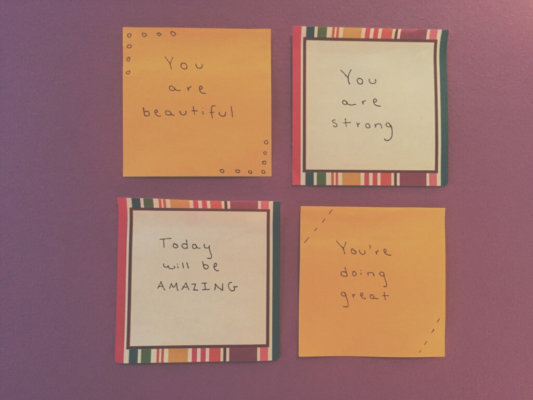 You
are
beautiful
You
are
strong
Today
will be
AMAZING
You're
doing
great